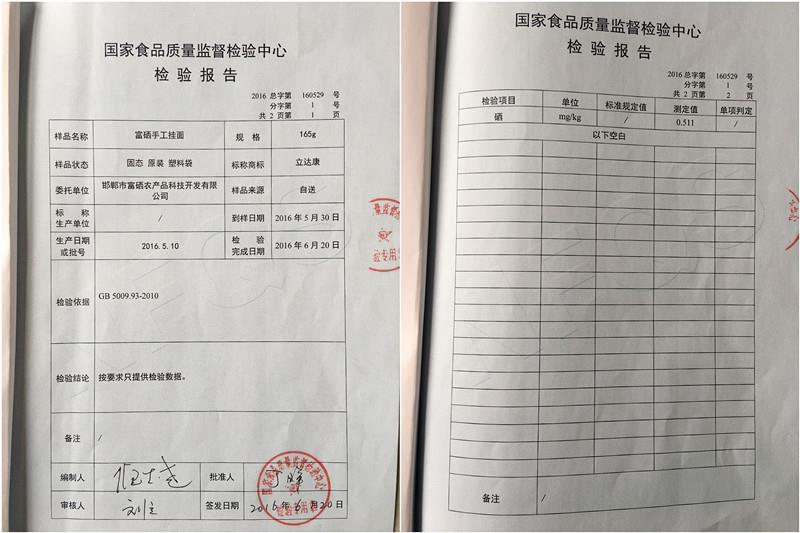 国家食品质量监督检验中心
检 验 报 告
2016 总字第 160529 号
分字第 1 号
共 2 页第 1 页
样品名称 富硒手工挂面 规 格 165g
样品状态 固态 原装 塑料袋 标称商标 立达康
委托单位 邯郸市富硒农产品科技开发有限
公司 样品来源 自送
标 称
生产单位 / 到样日期 2016 年 5 月 30 日
生产日期
或批号 2016.5.10 检 验
完成日期 2016 年 6 月 20 日
检验依据 GB 5009.93-2010
检验结论 按要求只提供检验数据。
备注 /
编制人 批准人
审核人 签发日期 2016 年 6 月 20 日
国家食品质量监督检验中心
检验专用章
国家食品质量监督检验中心
检 验 报 告
2016 总字第 160529 号
分字第 1 号
共 2 页第 2 页
检验项目 单位 标准规定值 测定值 单项判定
硒 mg/kg / 0.511 /
以下空白
备注 /